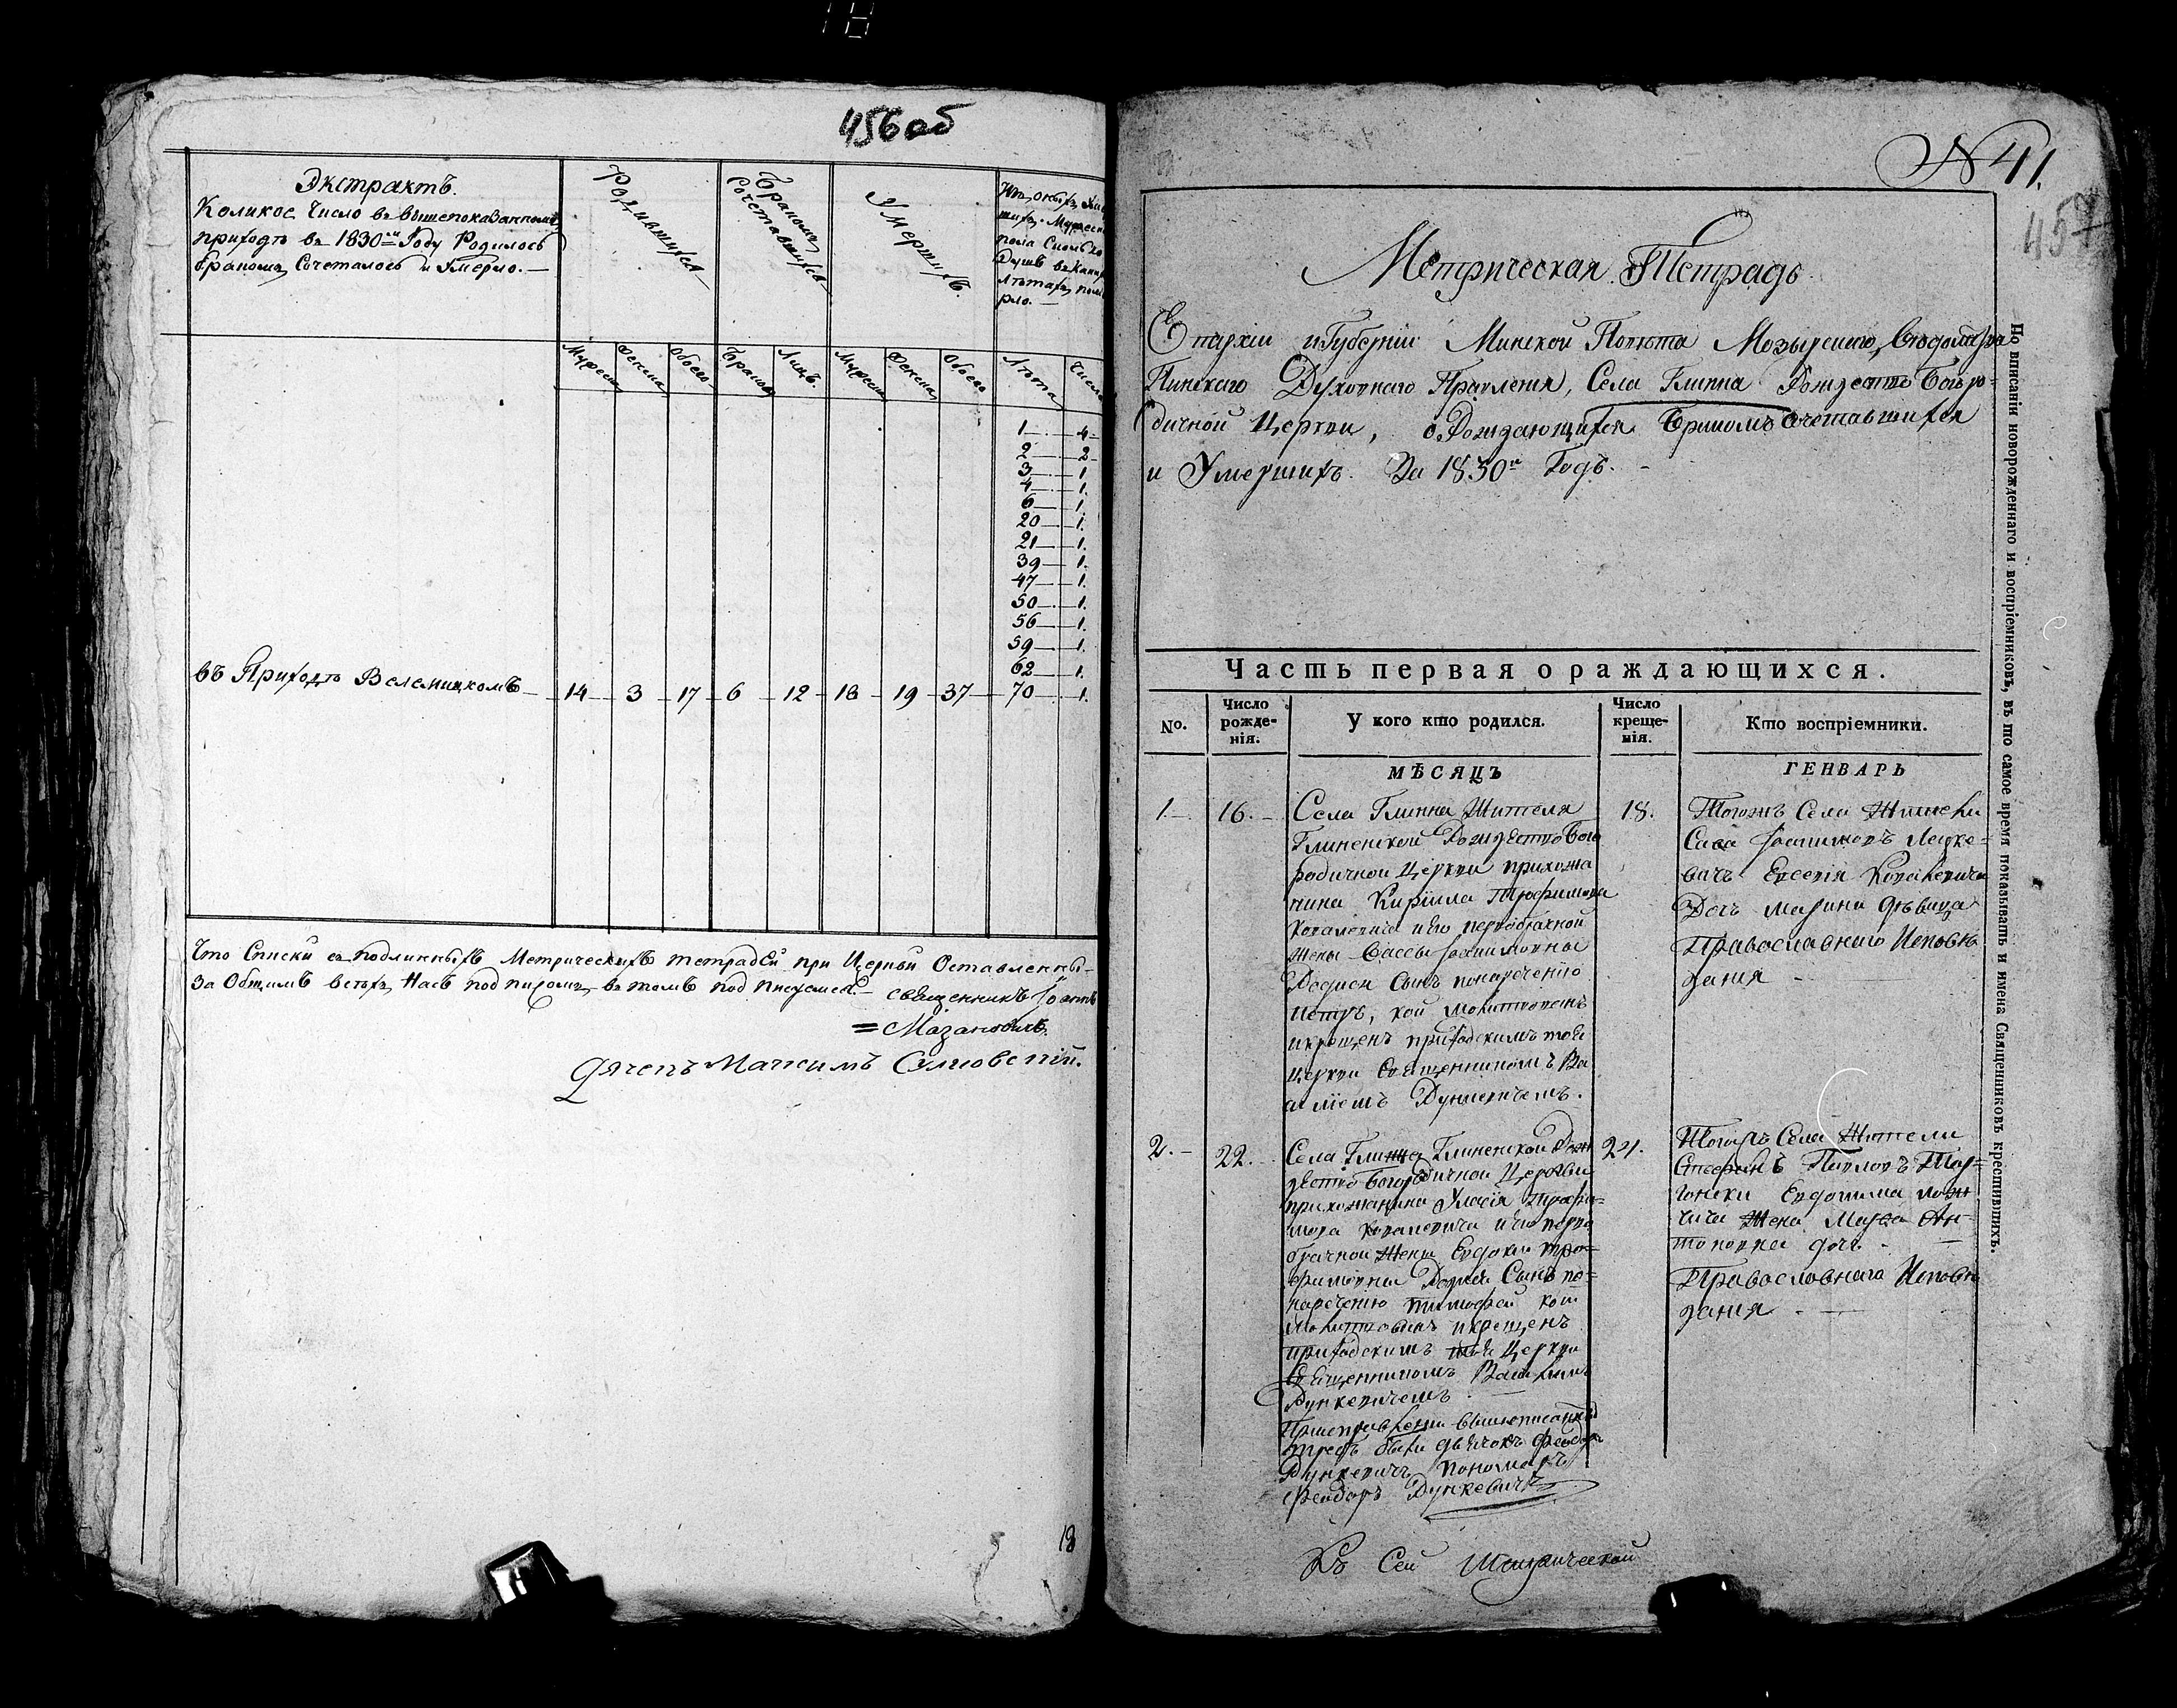 18
456 об
Экстрактъ.
Коликое Число въ вышепоказанномъ
приходѣ въ 1830мъ Году Родилось
бракомъ Сочеталось и Умерло.—
Родившихся
Бракомъ Сочетавшихся
Умершихъ.
Изъ оныхъ Умер
шихъ Мужеска
пола Сколько
Душъ въ Какихъ
Лѣтахъ поме
рло.—
Мужеска Женска Обоего Браковъ Лицъ. Мужеска Женска Обоего Лѣта Число
1 — 4
2 — 2
3 — 1.
4 — 1.
6 — 1.
20 — 1.
21 — 1.
39 — 1.
47 — 1.
50 — 1.
56 — 1.
59 — 1.
62 — 1.
въ Приходѣ Велемицкомъ — 14 — 3 — 17 — 6 — 12 — 18 — 19 — 37 — 70 — 1.
Что Списки съ подлинныхъ Метрическихъ тетрадей при Церкви Оставленны
За Общимъ всехъ Насъ подписомъ, въ томъ подписуемся.— священникъ Іоаннъ
= Мазановичъ.
Дячекъ Максимъ Сулковскій.
18
N 41.
457
Метрическая Тетрадь
Епархіи и Губерніи Минской Повѣта Мозырского, Вѣдомства
Пинскаго Духовнаго Правленія, Села Глинна Рождество Богоро=
дичной Церкви, о Рождающихся Бракомъ Сочетавшихся
и Умершихъ. За 1830й Годъ. -
Часть первая о раждающихся.
No. Число рожде-нія. У кого кто родился. Число креще-нія. Кто воспріемники.
МѢСЯЦЪ ГЕНВАРЬ
1.— 16.— Села Глинна Жителя
Глиненской Рождество Бого
родичной Церкви прихожа
нина Кирилла Трофимова
Ковалевича и его первобрачной
жены
Родися Сынъ понареченію
Петръ, кой молитвованъ
и крещенъ приходскимъ той
Церкви Священникомъ Ва
силіемъ Дункевичемъ.
18. Тогожъ Села Жители
Сава Іоакимовъ
Ковалевича
Дочь Марина дѣвица
Православнаго Исповѣ
данія —
2.— 22. Села Глинна Глиненской Рож
дество Богородичной Церкви
прихожанина Уласія Трофи=
мова Ковалевича и его перво
брачной Жены Евдокіи Тро=
фимовны Родися Сынъ по=
нареченію Тимофей кой
молитвованъ и крещенъ
приходскимъ той Церкви
Священникомъ Василіемъ
Дункевичемъ —
При исправленіи вышеписанныхъ
требъ были дьячокъ Феодоръ
Дункевичъ пономарь
Феодоръ Дункевичъ
24. Тогожъ Села Жители
Стефанъ Павловъ
Жена Марва Ан=
тоновна дочь. —
Православнаго Исповѣ
данія —
Къ Сей Метрической
По вписаніи новорожденнаго и воспріемниковъ, въ то самое время показывать и имена Священниковъ крестившихъ.